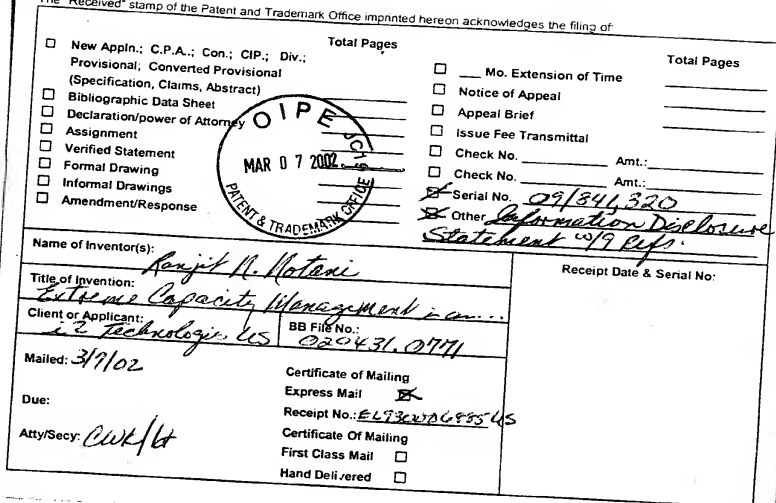 The "Received" stamp of the Patent and Trademark Office imprinted hereon acknowledges the filing of:
Total Pages
☐ New Appln.; C.P.A.; Con.; CIP.; Div.;
Provisional; Converted Provisional
(Specification, Claims, Abstract)
☐ Bibliographic Data Sheet
☐ Declaration/power of Attorney
☐ Assignment
☐ Verified Statement
☐ Formal Drawing
☐ Informal Drawings
☐ Amendment/Response
OIPE JC19
MAR 07 2002
PATENT & TRADEMARK OFFICE
Total Pages
☐ ___ Mo. Extension of Time
☐ Notice of Appeal
☐ Appeal Brief
☐ Issue Fee Transmittal
☐ Check No. ________ Amt.:
☐ Check No. ________ Amt.:
☒ Serial No. 09/841,320
☒ Other Information Disclosure
Statement w/9 refs.
Name of Inventor(s): Ranjit N. Notani
Title of Invention: Extreme Capacity Management in an...
Client or Applicant: i2 Technologies US
BB File No.: 020431.0771
Receipt Date & Serial No:
Mailed: 3/7/02
Due:
Atty/Secy: CWK/
Certificate of Mailing
Express Mail ☒
Receipt No.:
Certificate Of Mailing
First Class Mail ☐
Hand Delivered ☐